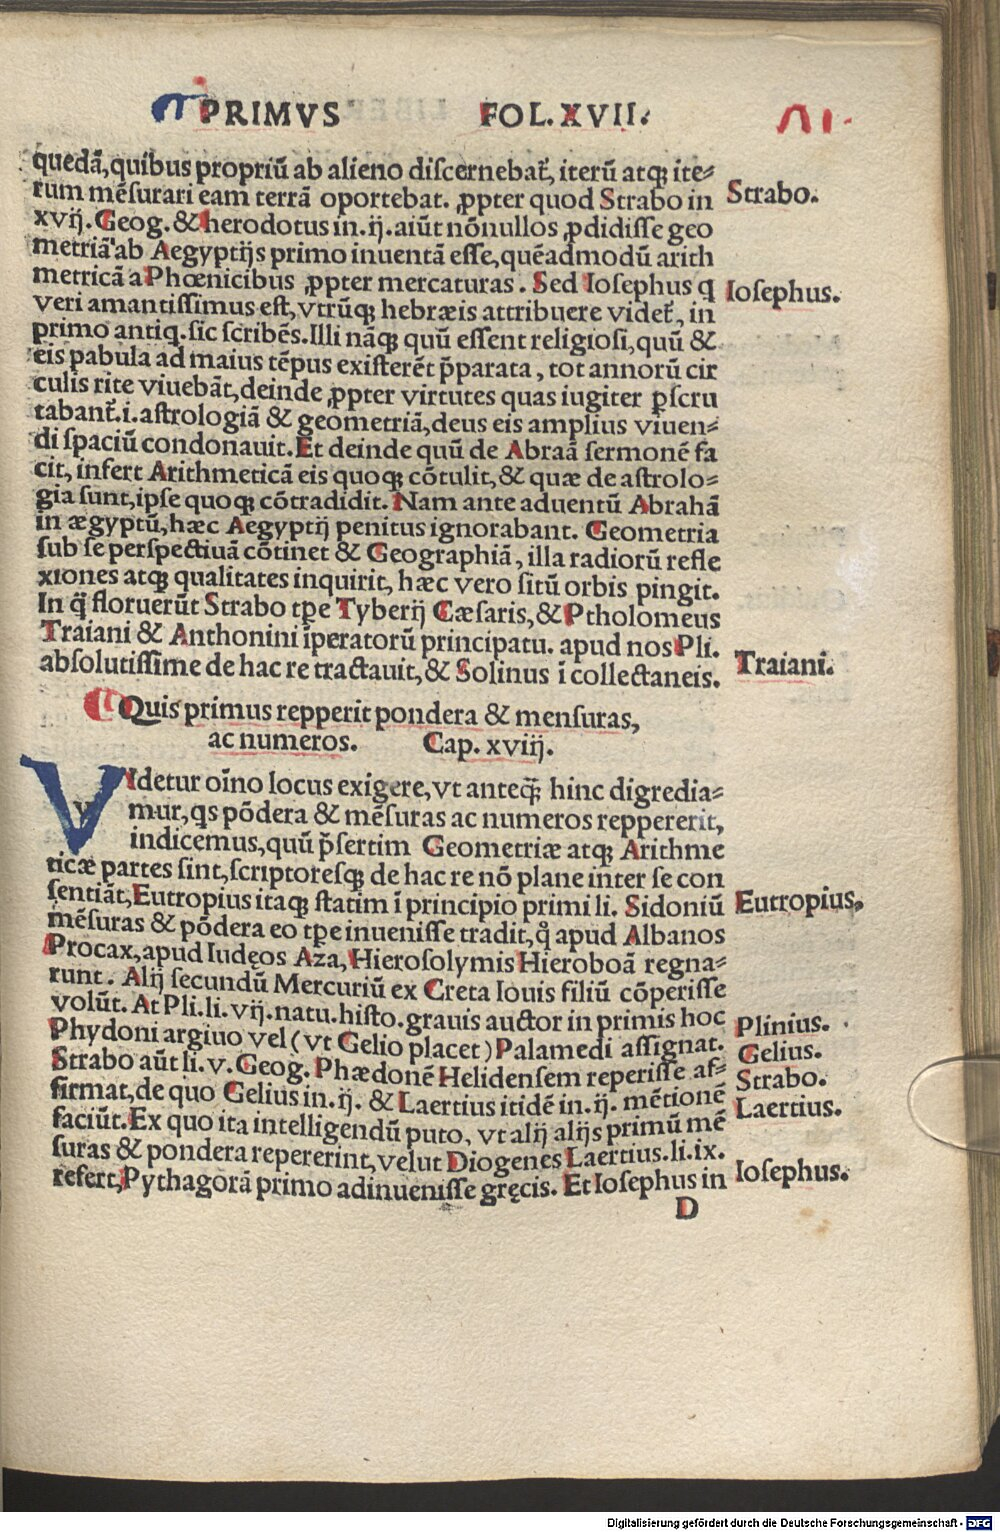 PRIMVS FOL. XVII.
quedã, quibus propriũ ab alieno discernebat᷒, iterũ atqꝫ ite-
rum mẽsurari eam terrã oportebat. ꝓpter quod Strabo in
Strabo.
xvij. Geog. & herodotus in. ij. aiũt nõnullos ꝓdidisse geo
metriã ab Aegyptijs primo inuentã esse, quẽadmodũ arith
metricã a Phœnicibus ꝓpter mercaturas. Sed Iosephus q
Iosephus.
veri amantissimus est, vtrũqꝫ hebræis attribuere videt᷒, in
primo antiq. sic scribẽs. Illi nãqꝫ quũ essent religiosi, quũ &
eis pabula ad maius tẽpus existerẽt p̃parata, tot annorũ cir
culis rite viuebãt, deinde ꝓpter virtutes quas iugiter ꝑscru
tabant᷒. i. astrologiã & geometriã, deus eis amplius viuen-
di spaciũ condonauit. Et deinde quũ de Abraã sermonẽ fa
cit, infert Arithmeticã eis quoqꝫ cõtulit, & quæ de astrolo-
gia sunt, ipse quoqꝫ cõtradidit. Nam ante aduentũ Abrahã
in ægyptũ, hæc Aegyptij penitus ignorabant. Geometria
sub se perspectiuã cõtinet & Geographiã, illa radiorũ refle
xiones atqꝫ qualitates inquirit, hæc vero sitũ orbis pingit.
In q̃ floruerũt Strabo tꝑe Tyberij Cæsaris, & Ptholomeus
Traiani & Anthonini ĩperatorũ principatu. apud nos Pli.
Traiani.
absolutissime de hac re tractauit, & Solinus ĩ collectaneis.
Quis primus repperit pondera & mensuras,
ac numeros. Cap. xviij.
VIdetur oĩno locus exigere, vt anteq̃ꝫ hinc digredia-
mur, qs põdera & mẽsuras ac numeros reppererit,
indicemus, quũ p̃sertim Geometriæ atqꝫ Arithme
ticæ partes sint, scriptoresqꝫ de hac re nõ plane inter se con
sentiãt, Eutropius itaqꝫ statim ĩ principio primi li. Sidoniũ
Eutropius,
mẽsuras & põdera eo tꝑe inuenisse tradit, q̊ apud Albanos
Procax, apud Iudęos Aza, Hierosolymis Hieroboã regna-
runt. Alij secundũ Mercuriũ ex Creta Iouis filiũ cõperisse
volũt. At Pli. li. vij. natu. histo. grauis auctor in primis hoc
Plinius.
Phydoni argiuo vel (vt Gelio placet) Palamedi assignat.
Gelius.
Strabo aũt li. v. Geog. Phædonẽ Helidensem reperisse af-
Strabo.
firmat, de quo Gelius in. ij. & Laertius itidẽ in. ij. mẽtionẽ
Laertius.
faciũt. Ex quo ita intelligendũ puto, vt alij alijs primũ mẽ
suras & pondera repererint, velut Diogenes Laertius. li. ix.
refert, Pythagorã primo adinuenisse gręcis. Et Iosephus in
Iosephus.
D
Digitalisierung gefördert durch die Deutsche Forschungsgemeinschaft - DFG